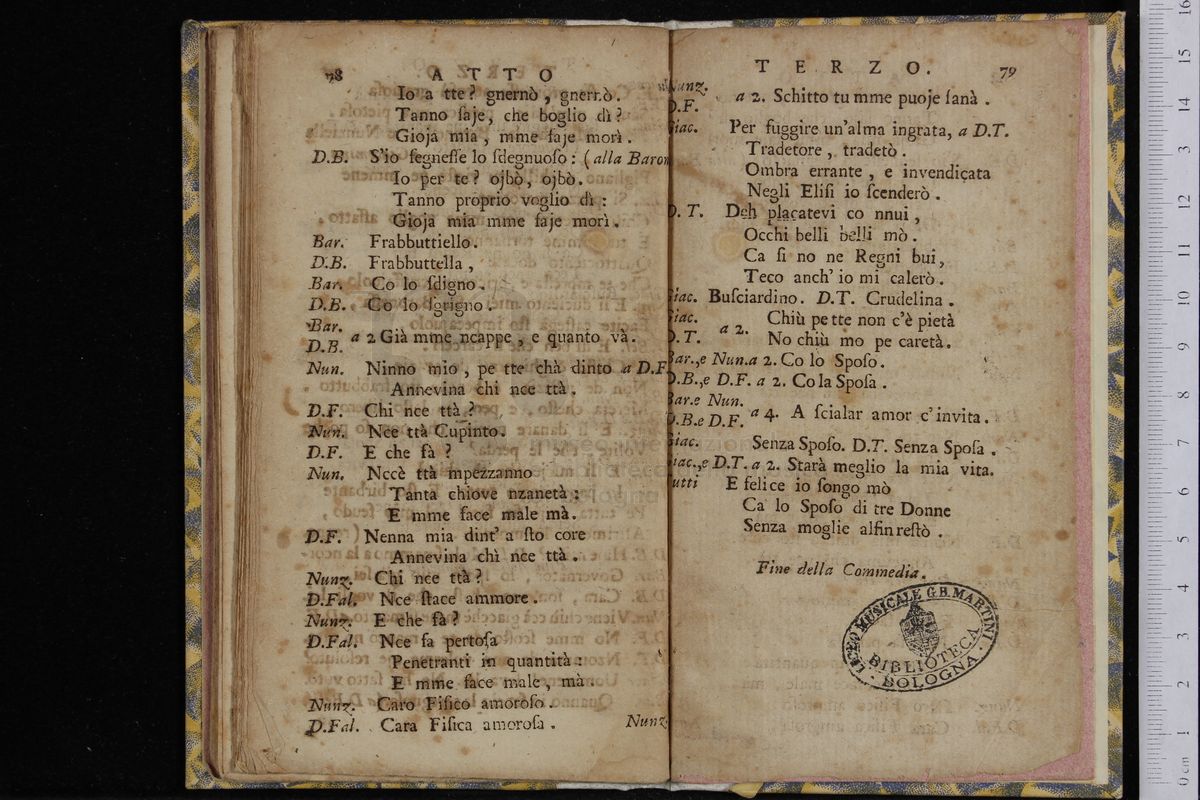 78 ATTO
Io a tte? gnernò, gnernò.
Tanno saje, che boglio dì?
Gioja mia, mme saje morì.
D.B. S'io segnesse lo sdegnuoso: (alla Baron
Io per te? ojbò, ojbò.
Tanno proprio voglio dì:
Gioja mia mme saje morì.
Bar. Frabbuttiello.
D.B. Frabbuttella,
Bar. Co lo sdigno.
D.B. Co lo sgrigno.
Bar.
D.B. a 2 Già mme ncappe, e quanto và.
Nun. Ninno mio, pe tte chà dinto a D.F.
Annevina chi nce ttà.
D.F. Chi nce ttà?
Nun. Nce ttà Cupinto.
D.F. E che fà?
Nun. Nccè ttà mpezzanno
Tanta chiove nzanetà:
E mme face male mà.
D.F. Nenna mia dint' a sto core
Annevina chì nce ttà.
Nunz. Chi nce ttà?
D.Fal. Nce stace ammore.
Nunz. E che fà?
D.Fal. Nce fa pertosa
Penetranti in quantità:
E mme face male, mà.
Nunz. Caro Fisico amoroso.
D.Fal. Cara Fisica amorosa.
Nunz.
TERZO. 79
Nunz.
D.F. a 2. Schitto tu mme puoje sanà.
Giac. Per fuggire un'alma ingrata, a D.T.
Tradetore, tradetò.
Ombra errante, e invendicata
Negli Elisi io scenderò.
D. T. Deh placatevi co nnui,
Occhi belli belli mò.
Ca si no ne Regni bui,
Teco anch' io mi calerò.
Giac. Busciardino. D.T. Crudelina.
Giac. Chiù pe tte non c'è pietà
D.T. a 2. No chiù mo pe caretà.
Bar.,e Nun.a 2. Co lo Sposo.
D.B.,e D.F. a 2. Co la Sposa.
Bar.e Nun.
D.B.e D.F. a 4. A scialar amor c'invita.
Giac. Senza Sposo. D.T. Senza Sposa.
Giac.,e D.T. a 2. Starà meglio la mia vita.
Tutti E felice io songo mò
Ca lo Sposo di tre Donne
Senza moglie alfin restò.
Fine della Commedia.
LICEO MUSICALE G.B. MARTINI
BIBLIOTECA
BOLOGNA